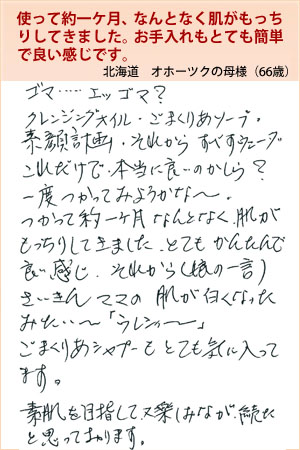 使って約一ケ月、なんとなく肌がもっち
りしてきました。お手入れもとても簡単
で良い感じです。
北海道　オホーツクの母様（66歳）
ゴマ……エッゴマ？
クレンジングオイル・ごまくりあソープ。
素顔計画・それから すべすべ
これだけで・本当に良いのかしら？
一度つかってみようかな〜。
つかって約一ケ月 なんとなく、肌が
もっちりしてきました、とても かんたんで
良い感じ、それから（娘の一言）
さいきん ママの 肌が白くなった
みたい〜「ウレシィー」
ごまくりあシャンプーも とても気に入って
ます。
素肌を目指して、又楽しみながら続けたい
と思っております。